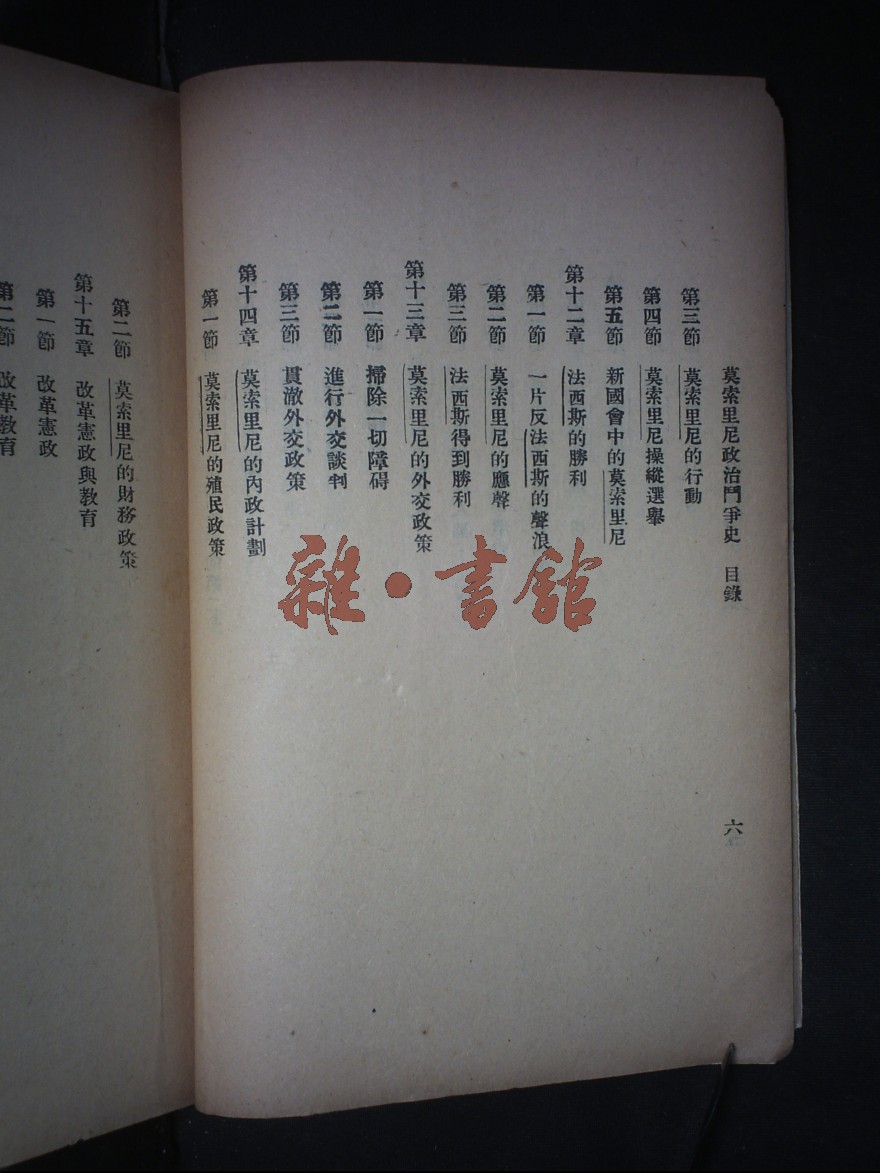 莫索里尼政治鬥爭史 目錄
六
第三節 莫索里尼的行動
第四節 莫索里尼操縱選舉
第五節 新國會中的莫索里尼
第十二章 法西斯的勝利
第一節 一片反法西斯的聲浪
第二節 莫索里尼的應聲
第三節 法西斯得到勝利
第十三章 莫索里尼的外交政策
第一節 掃除一切障碍
第二節 進行外交談判
第三節 貫澈外交政策
第十四章 莫索里尼的內政計劃
第一節 莫索里尼的殖民政策
第二節 莫索里尼的財務政策
第十五章 改革憲政與教育
第一節 改革憲政
第二節 改革教育
雜·書館